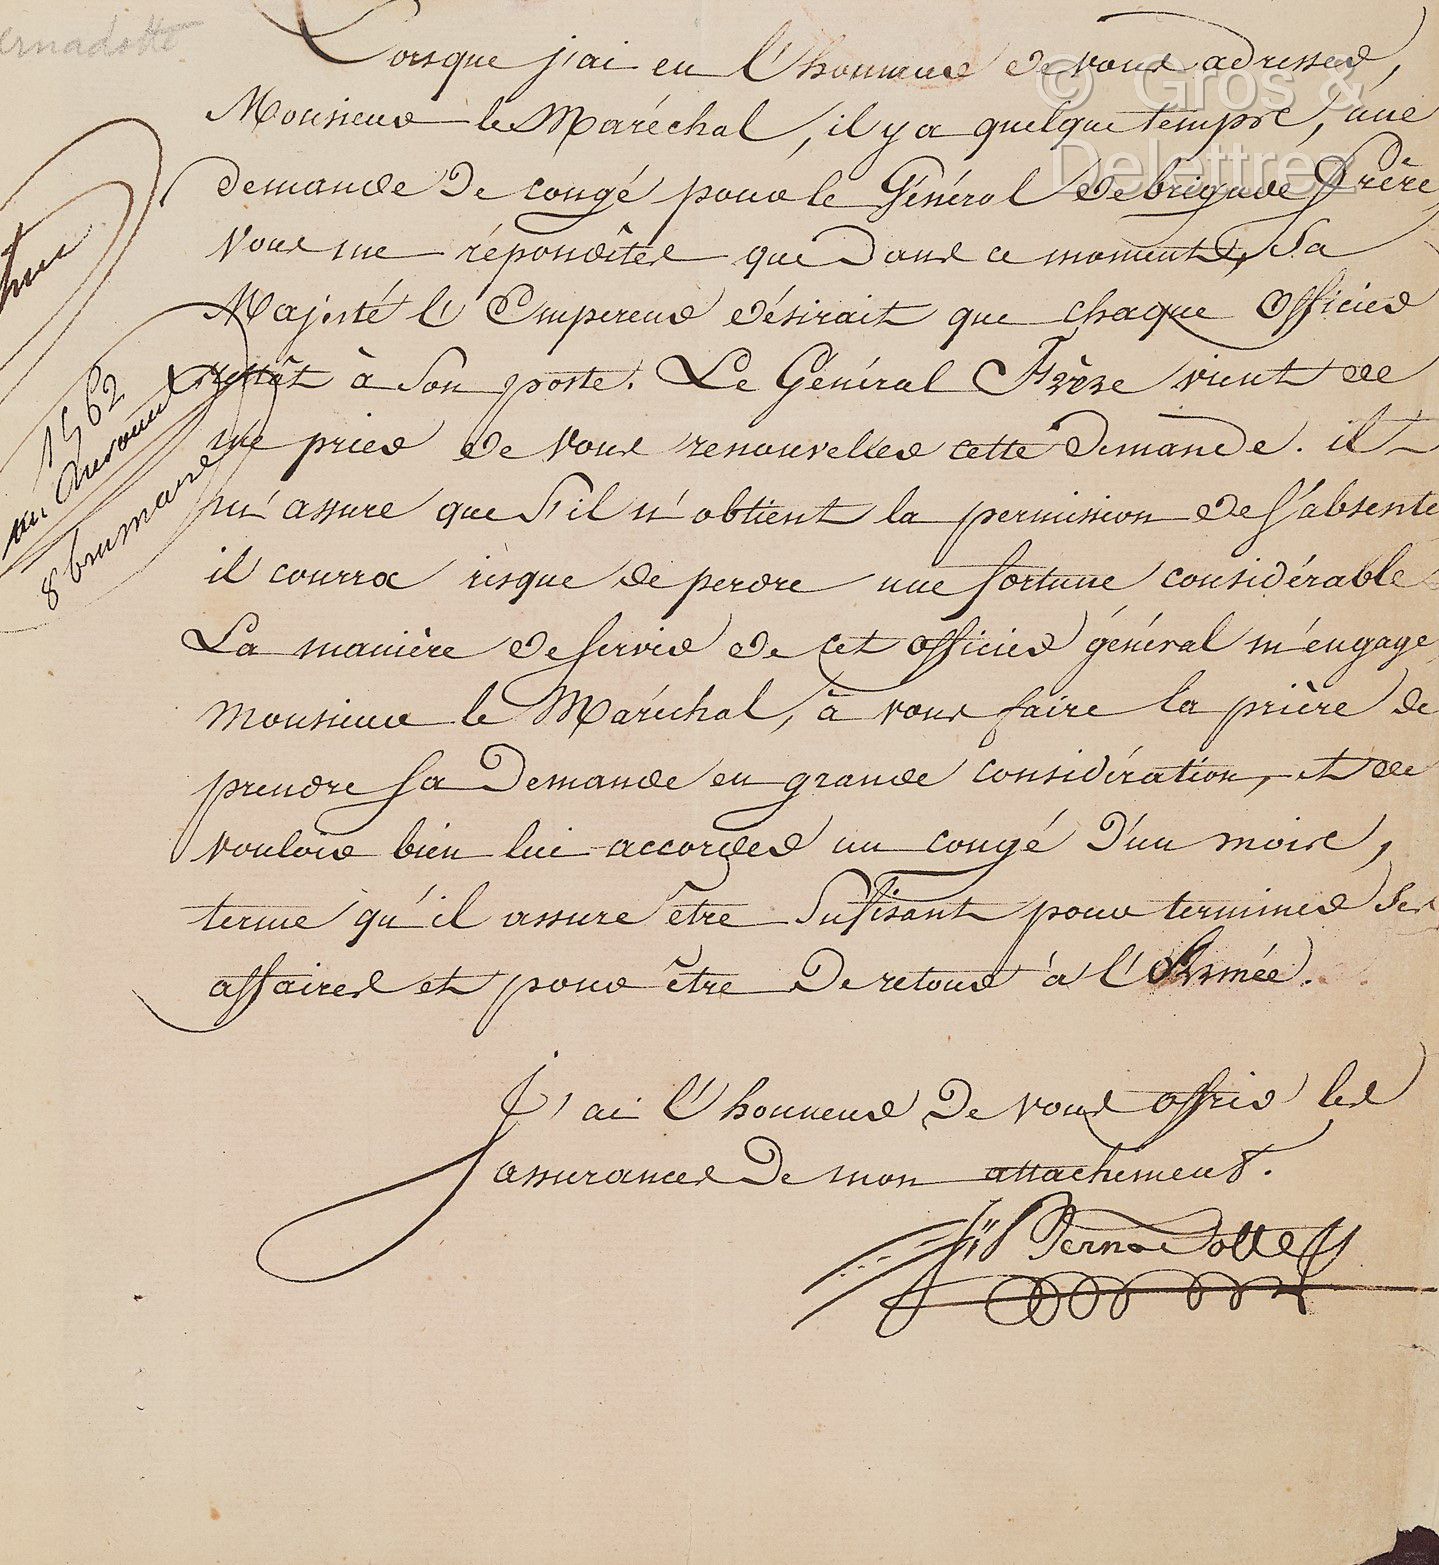 Bernadotte
© Gros & Delettrez
Lorsque j'ai eu l'honneur de vous adresser,
Monsieur le Maréchal, il y a quelque temps, une
demande de congé pour le Général de brigade Frère,
vous me répondîtes que dans ce moment, Sa
Majesté l'Empereur désirait que chaque officier
restât à son poste. Le Général Frère vient de
me prier de vous renouveller cette demande. il
m'assure que s'il n'obtient la permission de s'absenter
il courra risque de perdre une fortune considérable
La manière de servir de cet officier général m'engage,
monsieur le Maréchal, à vous faire la prière de
prendre sa demande en grande considération, et de
vouloir bien lui accorder un congé d'un mois,
terme qu'il assure être sufisant pour terminer ses
affaires et pour être de retour à l'Armée.
J'ai l'honneur de vous offrir les
assurances de mon attachement.
Bernadotte
1562
8 brumaire